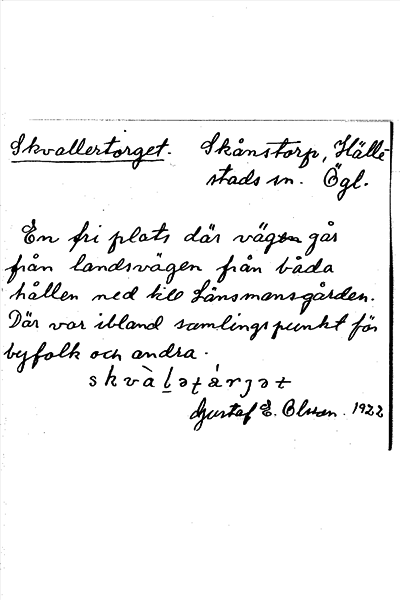 Skvallertorget. Skånstorp, Hälle-
stads sn. Ögl.
En fri plats där vägen går
från landsvägen från båda
hållen ned till Länsmansgården.
Där var ibland samlingspunkt för
byfolk och andra.
Gustaf E. Olsson. 1922